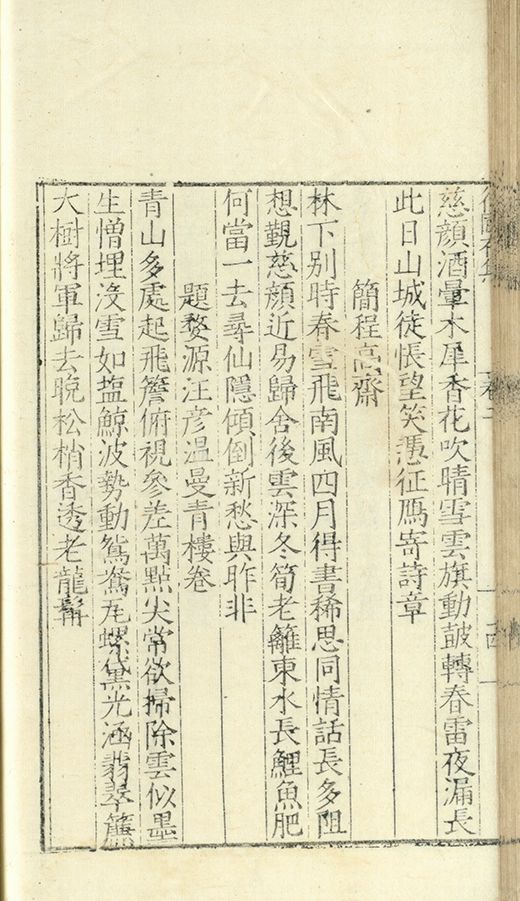 慈顔酒暈木犀香花吹晴雪雲旗動皷轉春雷夜漏長
此日山城徒悵望笑憑征鴈寄詩章
簡程高齋
林下别時春雪飛南風四月得書稀思同情話長多阻
想觀慈顔近易歸舎後雲深冬筍老籬東水長鯉魚肥
何當一去尋仙隱傾倒新愁與昨非
題婺源汪彦温曼青樓卷
青山多處起飛簷俯視參差萬點尖常欲掃除雲似墨
生憎埋没雪如塩鯨波勢動鴛鴦瓦螺黛光涵翡翠簾
大樹將軍歸去晩松梢香透老龍髯